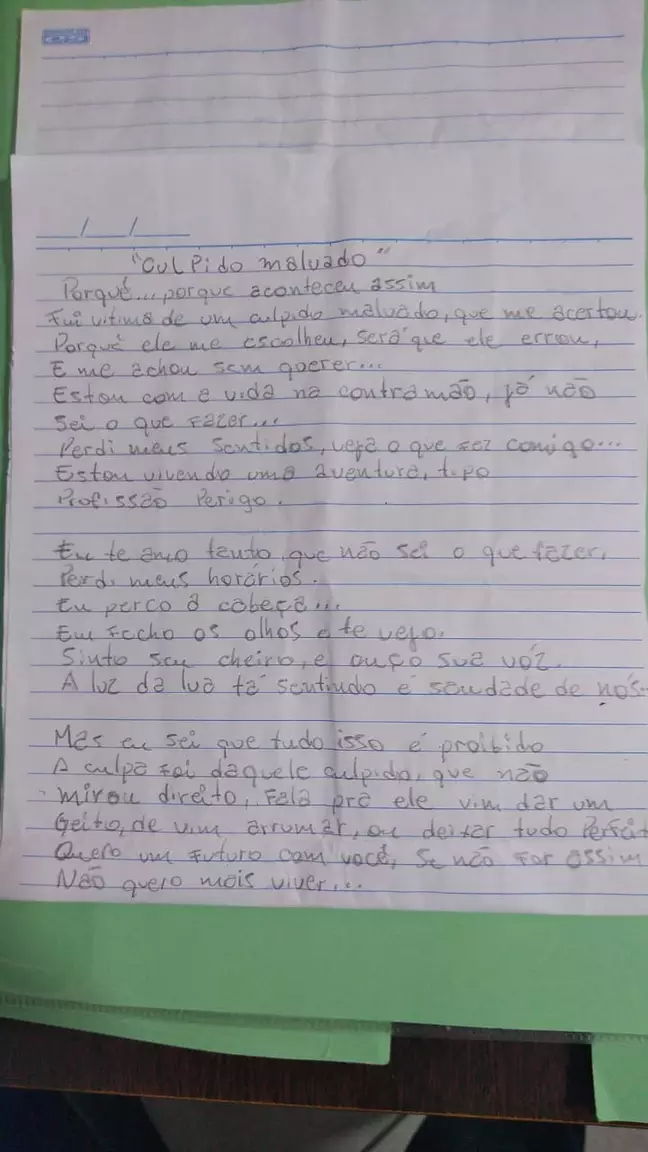 "Culpido malvado"
Porquê... porque aconteceu assim
Fui vitima de um culpido malvado, que me acertou.
Porquê ele me escolheu, será que ele errou,
E me achou sem querer...
Estou com a vida na contramão, já não
Sei o que fazer...
Perdi meus sentidos, veja o que fez comigo...
Estou vivendo uma aventura, tipo
Profissão Perigo.
Eu te amo tanto, que não sei o que fazer,
Perdi meus horários.
Eu perco a cabeça...
Eu fecho os olhos e te vejo.
Sinto seu cheiro, e ouço sua vóz.
A luz da lua tá sentindo é saudade de nós.
Mas eu sei que tudo isso é proibido
A culpa foi daquele culpido, que não
mirou direito, Fala pra ele vim dar um
Geito, de vim arrumar, ou deixar tudo Perfeit
Quero um futuro com você, Se não for assim
Não quero mais viver...